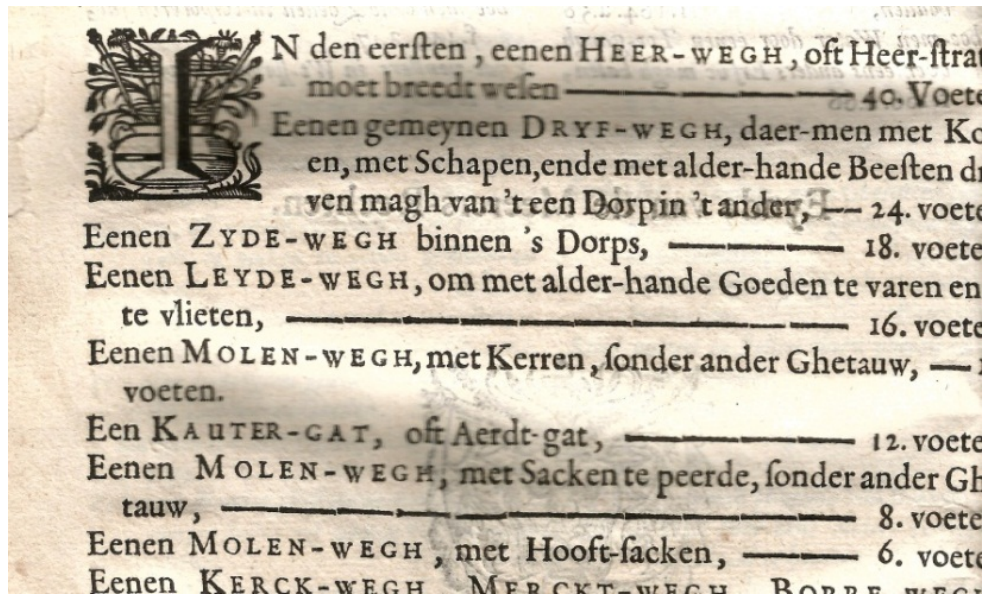 IN den eersten, eenen HEER-WEGH, oft Heer-strat
moet breedt wesen — 40. Voete
Eenen gemeynen DRYF-WEGH, daer-men met Ko
en, met Schapen, ende met alder-hande Beesten dr
ven magh van 't een Dorp in 't ander, — 24. voete
Eenen ZYDE-WEGH binnen 's Dorps, — 18. voete
Eenen LEYDE-WEGH, om met alder-hande Goeden te varen en
te vlieten, — 16. voete
Eenen MOLEN-WEGH, met Kerren, sonder ander Ghetauw, —
voeten.
Een KAUTER-GAT, oft Aerdt-gat, — 12. voete
Eenen MOLEN-WEGH, met Sacken te peerde, sonder ander Gh
tauw, — 8. voete
Eenen MOLEN-WEGH, met Hooft-sacken, — 6. voete
Eenen KERCK-WEGH MERCKT-WEGH